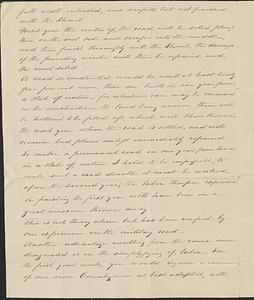 full width intended, and scraped but not finished
with the Shovel.
Next year the centre of the road will be solid, plough
then on the out side and scrape into the middle,
and then finish thoroughly with the Shovel, the damage
of the preceding winter will then be repaired and,
the road solid.
A road so constructed would be worth at least twenty
per per cent more than one built in one year from
a state of nature, for whatever care may be
in the construction the land being uneven there will
be hollows to be filled up which will show themselves
the next year when the road is settled, and will
occasion bad places unless immediately repaired
To make a permanent road in one year from land
in a state of nature I hold to be impossible, to
make such a road durable it must be worked
upon the second year, the labor therefore expended
in finishing the first year will have been in a
great measure thrown away
This is not theory alone but has been verified by
our experience on the military road.
Another advantage resulting from the course now
designated is in the simplifying of labor. For
the first years work you would require a
of our own Countrymen as best adapted, with